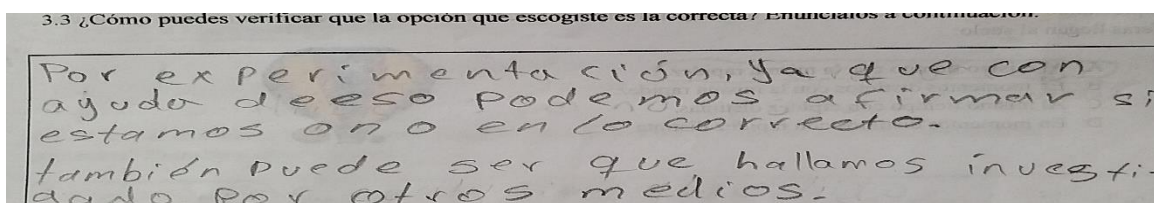 3.3 ¿Cómo puedes verificar que la opción que escogiste es la correcta? Enúncialos a continuación.
Por experimentación, ya que con
ayuda de eso podemos afirmar si
estamos o no en lo correcto.
también puede ser que hallamos investi-
gado por otros medios.